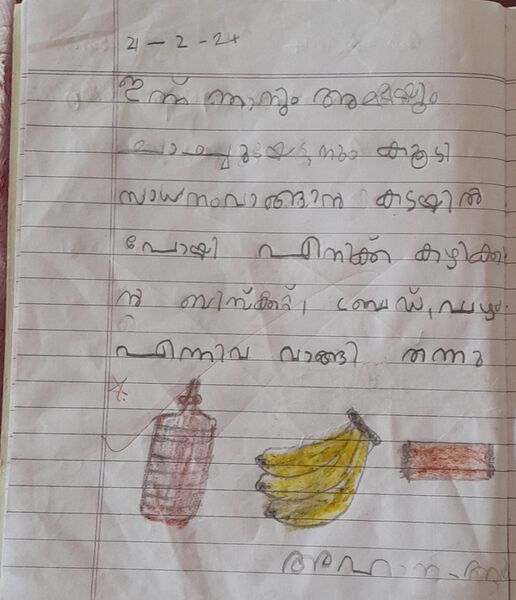 21-2-24
ഇന്ന് ഞാനും അമ്മയും
കൂടി
സാധനംവാങ്ങാൻ കടയിൽ
പോയി എനിക്ക് കഴിക്കാ
ൻ ബിസ്ക്കറ്റ്, ബ്രേഡ്, പഴം
എന്നിവ വാങ്ങി തന്നു